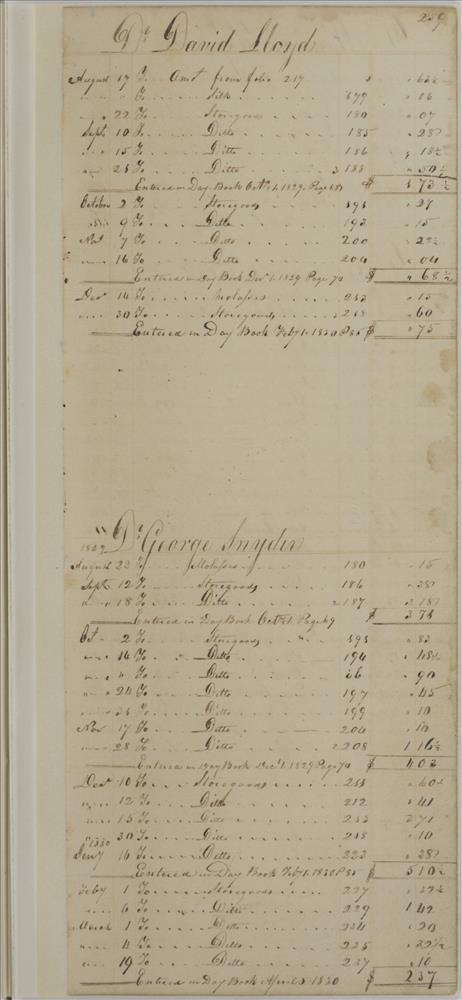 259
Dr. David Lloyd
August 17 To Amot from folio 217 $ " 62½
" " To Silk 179 " 06
" 22 To Storegoods 180 " 07
Sept. 10 To Ditto 185 " 28
" 15 To Ditto 186 " 18¾
" 25 To Ditto 188 " 50½
Entered in Day Book Oct. 1. 1829. Page 68 $ 1 73½
October 2 To Storegoods 191 " 27
" 9 To Ditto 193 " 15
Nov 7 To Ditto 200 " 22½
" 16 To Ditto 204 " 04
Entered in Day Book Dec. 1. 1829 Page 74 $ " 68½
Decr 14 To Molasses 213 " 15
" 30 To Storegoods 218 " 60
Entered in Day Book Feby 1. 1830 P 85 $ " 75
1829 Dr. George Snyder
August 22 To Molasses 180 " 15
Sept. 12 To Storegoods 186
" 18 To Ditto 187
Entered in Day Book Oct. 1 Page 69 $
Oct 2 To Storegoods 191
" 14 To Ditto 194
" " To Ditto " 90
" 24 To Ditto 197 " 45
To Ditto 199 " 10
Nov 17 To Ditto 204 " 10
" 28 To Ditto 208 1 16½
Entered in Day Book Dec. 1. 1829 Page 74 $
Decr 10 To Storegoods
" 12 To Ditto 212 " 41
" 15 To Ditto 213 2 71
" 30 To Ditto 218 " 10
1830
Jany 16 To Ditto 223 " 28
Entered in Day Book Feby 1. 1830 P 85 $ 5 10½
Feby 1 To Storegoods 227
" 6 To Ditto 229 1 42
March 1 To Ditto 234 " 20
" 4 To Ditto 235
" 19 To Ditto 237 " 10
Entered in Day Book April 3 1830 $ 2 37